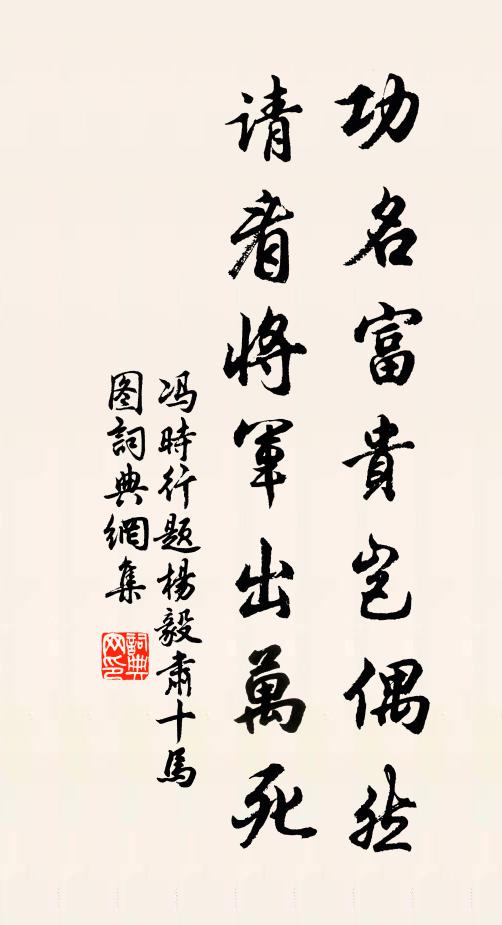 功名富貴岂偶然
请看將军出萬死
冯時行题楊毅肅十馬
图詞典網集
詞典网印